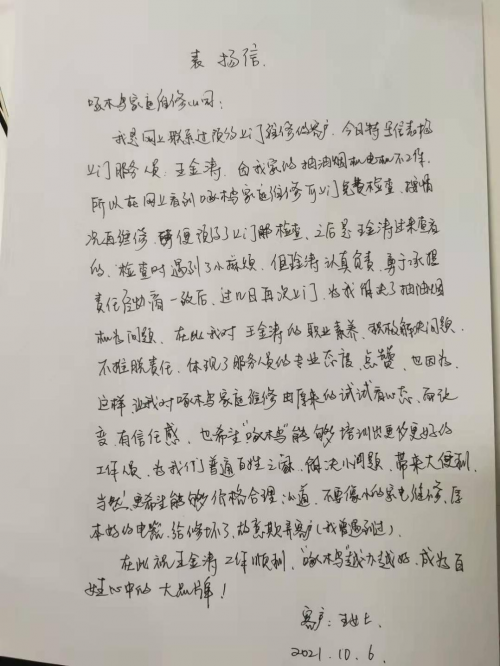 表扬信
啄木鸟家庭维修公司：
我是网上联系过预约上门维修的客户，今日特写信表扬
上门服务人员：王金涛，因我家的抽油烟机电机不工作，
所以在网上看到啄木鸟家庭维修可上门免费检查，按情
况再维修，便预约了上门检查，之后是王金涛过来查看
的，检查时遇到了小麻烦，但金涛认真负责，勇于承担
责任经协商一致后，过几日再次上门，为我解决了抽油烟
机为问题，在此我对王金涛的职业素养，积极解决问题，
不推脱责任，体现了服务人员的专业态度，点赞，也因为
这样让我对啄木鸟家庭维修由原来的试试看心态，而改
变，有信任感，也希望“啄木鸟”能够培训出更多更好的
工作人员，为我们普通百姓之家，解决小问题，带来大便利，
当然！更希望能够价格合理公道，不要像小的家电维修，原
本好的电器，给修坏了，故意欺弄客户（我曾遇到过）
在此祝王金涛工作顺利，“啄木鸟”越办越好，成为百
姓心中的大品牌！
客户：王女士
2021.10.6